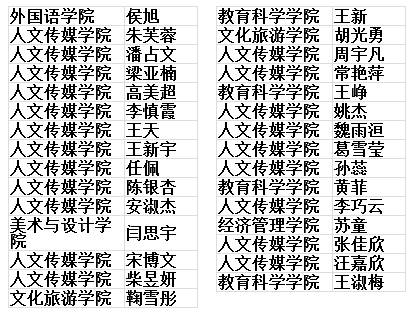 外国语学院 侯旭
人文传媒学院 朱芙蓉
人文传媒学院 潘占文
人文传媒学院 梁亚楠
人文传媒学院 高美超
人文传媒学院 李慎霞
人文传媒学院 王天
人文传媒学院 王新宇
人文传媒学院 任佩
人文传媒学院 陈银杏
人文传媒学院 安淑杰
美术与设计学
院 闫思宇
人文传媒学院 宋博文
人文传媒学院 柴昱妍
文化旅游学院 鞠雪彤
教育科学学院 王新
文化旅游学院 胡光勇
人文传媒学院 周宇凡
人文传媒学院 常艳萍
教育科学学院 王峥
人文传媒学院 姚杰
人文传媒学院 魏雨洹
人文传媒学院 葛雪莹
人文传媒学院 孙蕊
教育科学学院 黄菲
人文传媒学院 李巧云
经济管理学院 苏童
人文传媒学院 张佳欣
人文传媒学院 汪嘉欣
教育科学学院 王淑梅